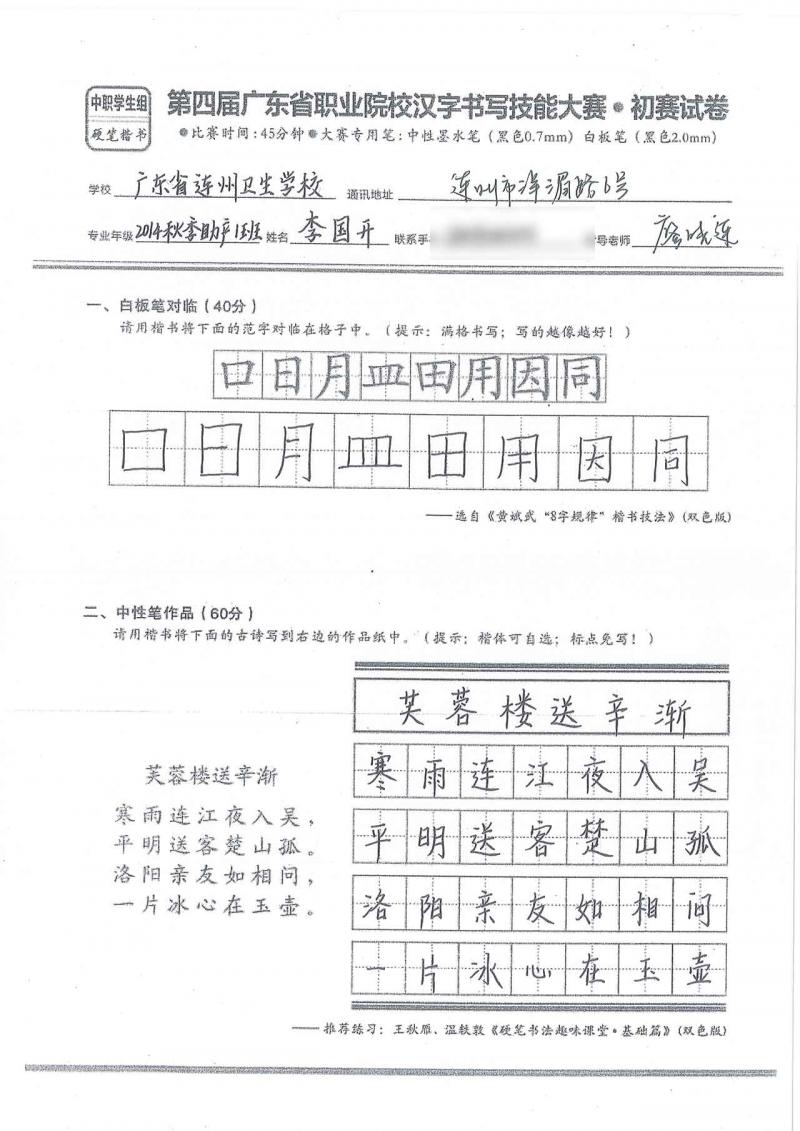 中职学生组
硬笔楷书
第四届广东省职业院校汉字书写技能大赛·初赛试卷
●比赛时间:45分钟●大赛专用笔:中性墨水笔(黑色0.7mm)白板笔(黑色2.0mm)
学校 广东省连州卫生学校 通讯地址 连州市洋湄路6号
专业年级 2014秋季助产1班 姓名 李国开 联系手 导老师 廖晓连
一、白板笔对临(40分)
请用楷书将下面的范字对临在格子中。(提示:满格书写;写的越像越好!)
口日月皿田用因同
口日月皿田用因同
——选自《黄斌武“8字规律”楷书技法》(双色版)
二、中性笔作品(60分)
请用楷书将下面的古诗写到右边的作品纸中。(提示:楷体可自选;标点免写!)
芙蓉楼送辛渐
寒雨连江夜入吴,
平明送客楚山孤。
洛阳亲友如相问,
一片冰心在玉壶。
芙蓉楼送辛渐
寒雨连江夜入吴
平明送客楚山孤
洛阳亲友如相问
一片冰心在玉壶
——推荐练习:王秋雁、温轶敦《硬笔书法趣味课堂·基础篇》(双色版)